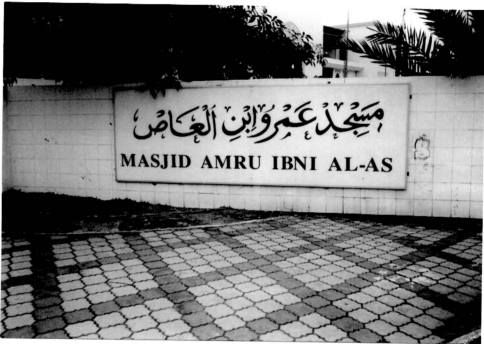 مَسْجِدْ عَمْرُو اِبْنِ الْعَاصْ
MASJID AMRU IBNI AL-AS